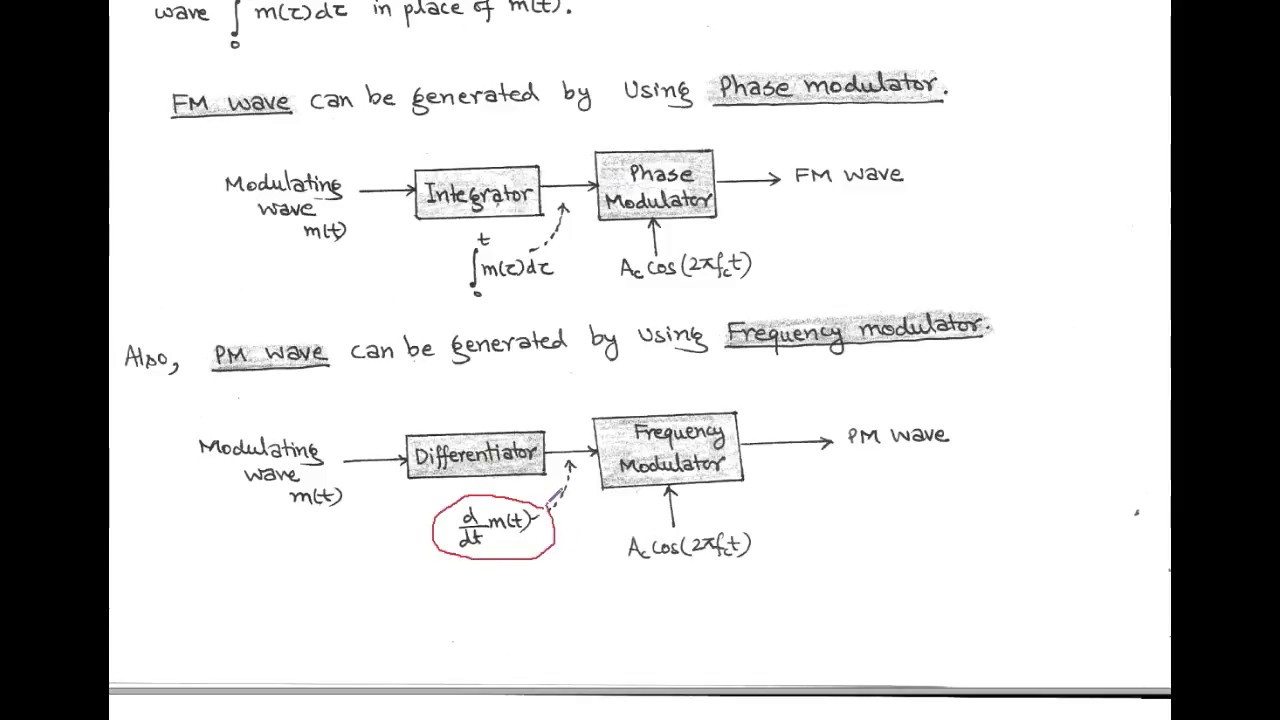 wave ∫₀ m(τ)dτ in place of m(t).
FM wave can be generated by using Phase modulator.
Modulating wave m(t)
Integrator
Phase Modulator
FM wave
∫₀ᵗ m(τ)dτ
A_c cos(2πf_c t)
Also, PM wave can be generated by using Frequency modulator.
Modulating wave m(t)
Differentiator
Frequency Modulator
PM wave
d/dt m(t)
A_c cos(2πf_c t)